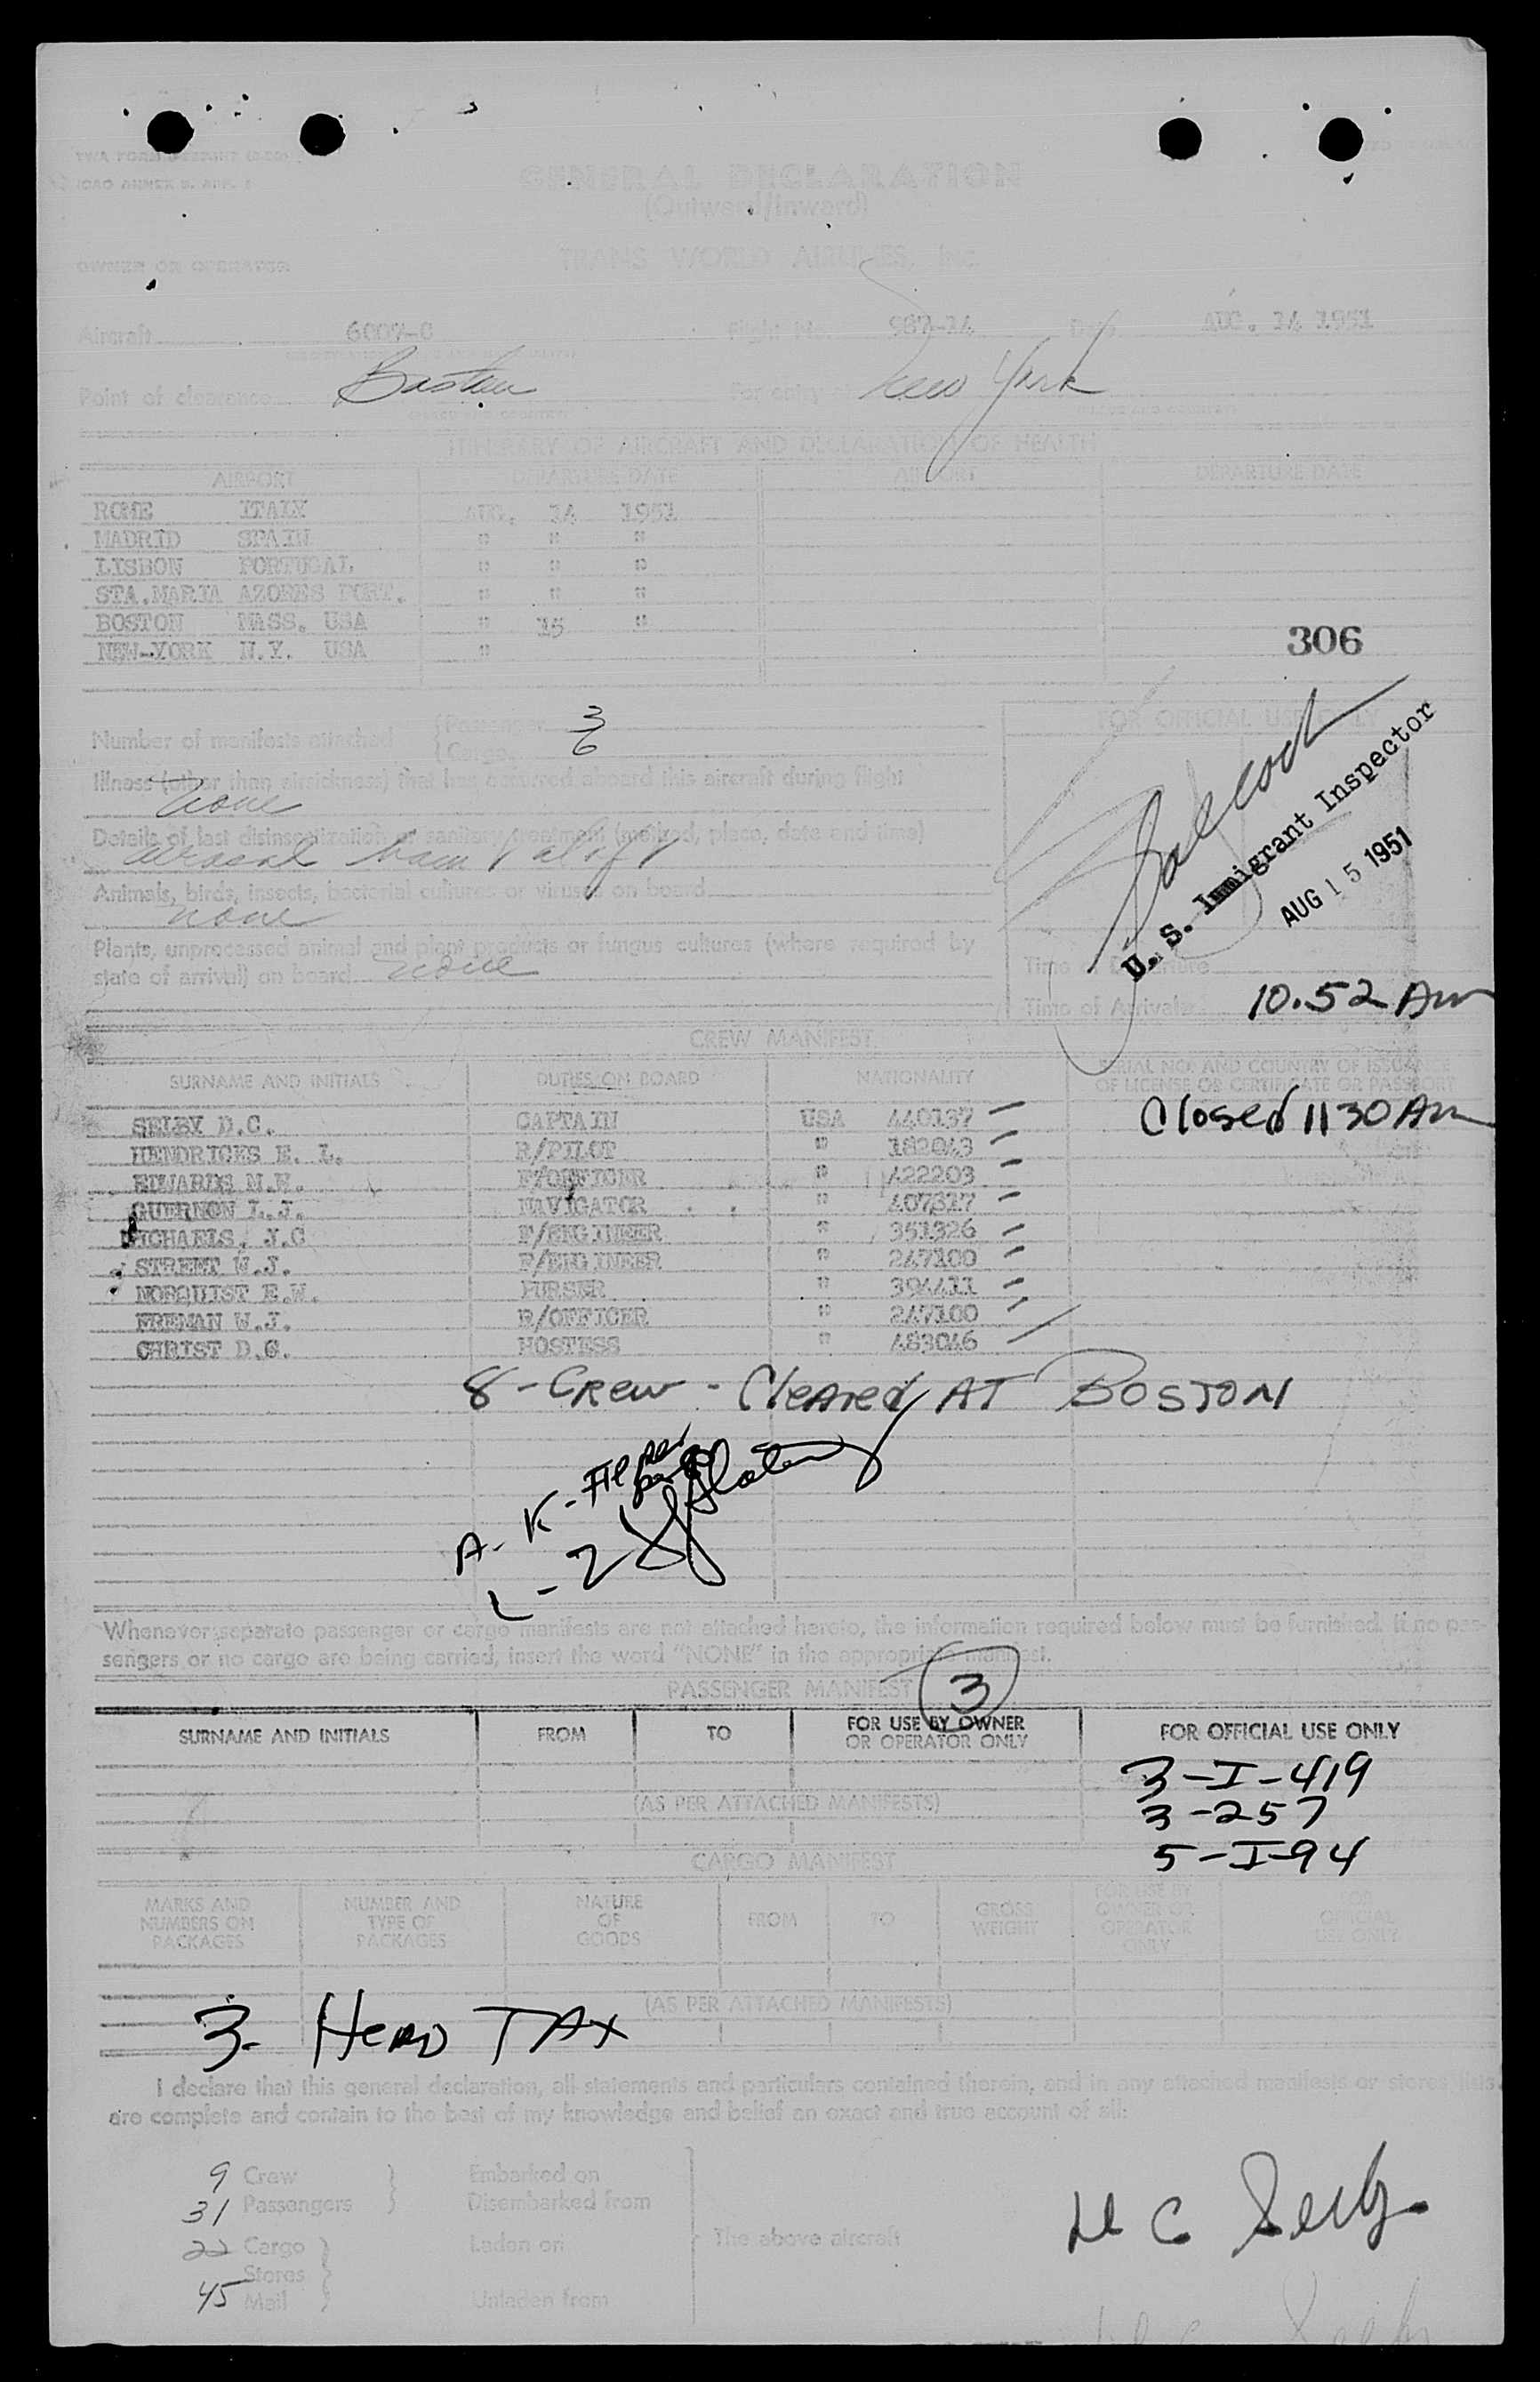 GENERAL DECLARATION
(Outward/Inward)
TRANS WORLD AIRLINES, Inc.
OWNER OR OPERATOR
Aircraft 6007-C Flight No. 967-14 Date AUG. 14 1951
Point of clearance Boston For entry New York
ITINERARY OF AIRCRAFT AND DECLARATION OF HEALTH
AIRPORT DEPARTURE DATE AIRPORT DEPARTURE DATE
ROME ITALY AUG. 14 1951
MADRID SPAIN " " "
LISBON PORTUGAL " " "
STA.MARIA AZORES PORT. " " "
BOSTON MASS. USA " 15 "
NEW-YORK N.Y. USA "
306
Number of manifests attached {Passenger 3
{Cargo 6
FOR OFFICIAL USE ONLY
Illness (other than airsickness) that has occurred aboard this aircraft during flight
none
Details of last disinsectization or sanitary treatment (method, place, date and time)
aerosol
Animals, birds, insects, bacterial cultures or viruses on board
none
Plants, unprocessed animal and plant products or fungus cultures (where required by
state of arrival) on board none
U. S. Immigrant Inspector
AUG 15 1951
Time of Departure
Time of Arrival 10.52 Am
CREW MANIFEST
SURNAME AND INITIALS DUTIES ON BOARD NATIONALITY SERIAL NO. AND COUNTRY OF ISSUANCE
OF LICENSE OR CERTIFICATE OR PASSPORT
Closed 11 30 Am
SELBY D.C. CAPTAIN USA 440137
HENDRICKS E. L. R/PILOT " 182043
EDWARDS M.E. F/OFFICER " 422203
GUERNON L.J. NAVIGATOR " 407317
MICHAELS. J.C F/ENGINEER " 351326
STREET W.J. F/ENGINEER " 247100
NORQUIST E.W. PURSER " 394411
FREMAN W.J. R/OFFICER " 247100
CHRIST D.G. HOSTESS " 483046
8 - Crew - Cleared AT BOSTON
A- K-
L - 2
Whenever separate passenger or cargo manifests are not attached hereto, the information required below must be furnished. If no pas-
sengers or no cargo are being carried, insert the word "NONE" in the appropriate manifest.
PASSENGER MANIFEST 3
SURNAME AND INITIALS FROM TO FOR USE BY OWNER
OR OPERATOR ONLY FOR OFFICIAL USE ONLY
3-I-419
(AS PER ATTACHED MANIFESTS) 3-257
5-I-94
CARGO MANIFEST
MARKS AND
NUMBERS ON
PACKAGES NUMBER AND
TYPE OF
PACKAGES NATURE
OF
GOODS FROM TO GROSS
WEIGHT FOR USE BY
OWNER OR
OPERATOR
ONLY FOR
OFFICIAL
USE ONLY
(AS PER ATTACHED MANIFESTS)
3- HEAD TAX
I declare that this general declaration, all statements and particulars contained therein, and in any attached manifests or stores lists,
are complete and contain to the best of my knowledge and belief an exact and true account of all:
9 Crew } Embarked on
31 Passengers } Disembarked from
22 Cargo } Laden on The above aircraft
Stores
45 Mail } Unladen from
D C Selby